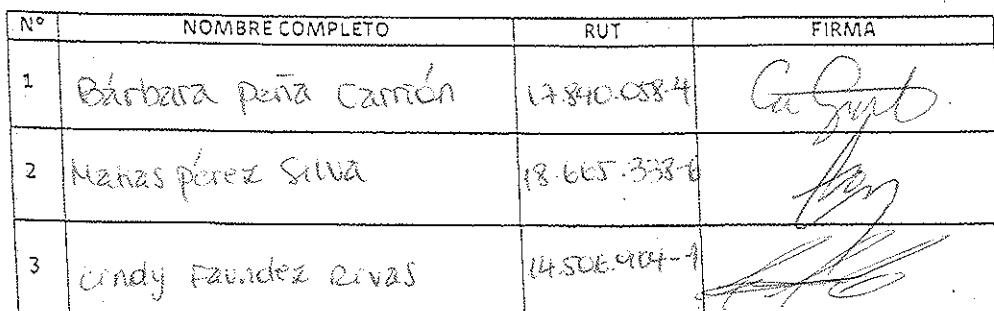 Nº NOMBRE COMPLETO RUT FIRMA
1 Bárbara Peña Carrión 17.840.058-4
2 Matias pérez Silva 18.665.338-6
3 Cindy Faundez Rivas